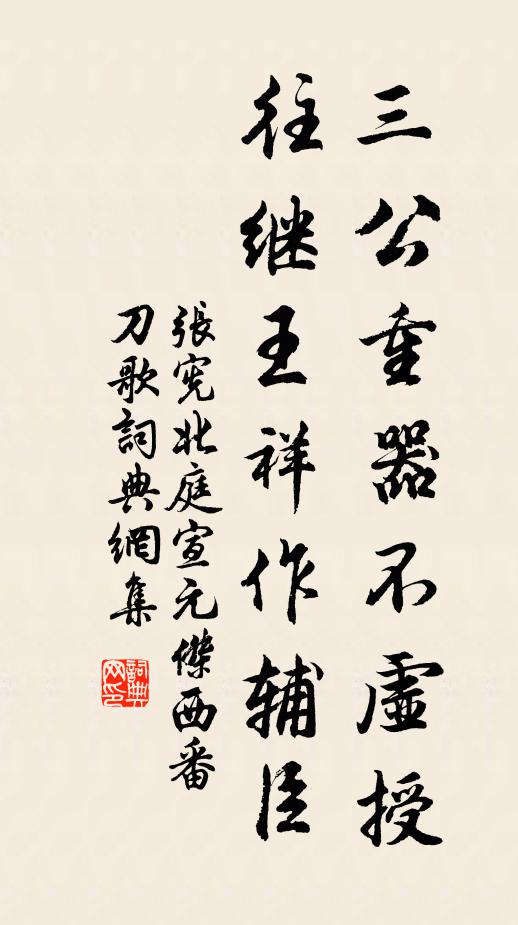 三公重器不虛授
往继王祥作辅臣
張宪北庭宣元傑西番
刀歌詞典網集
詞典网印